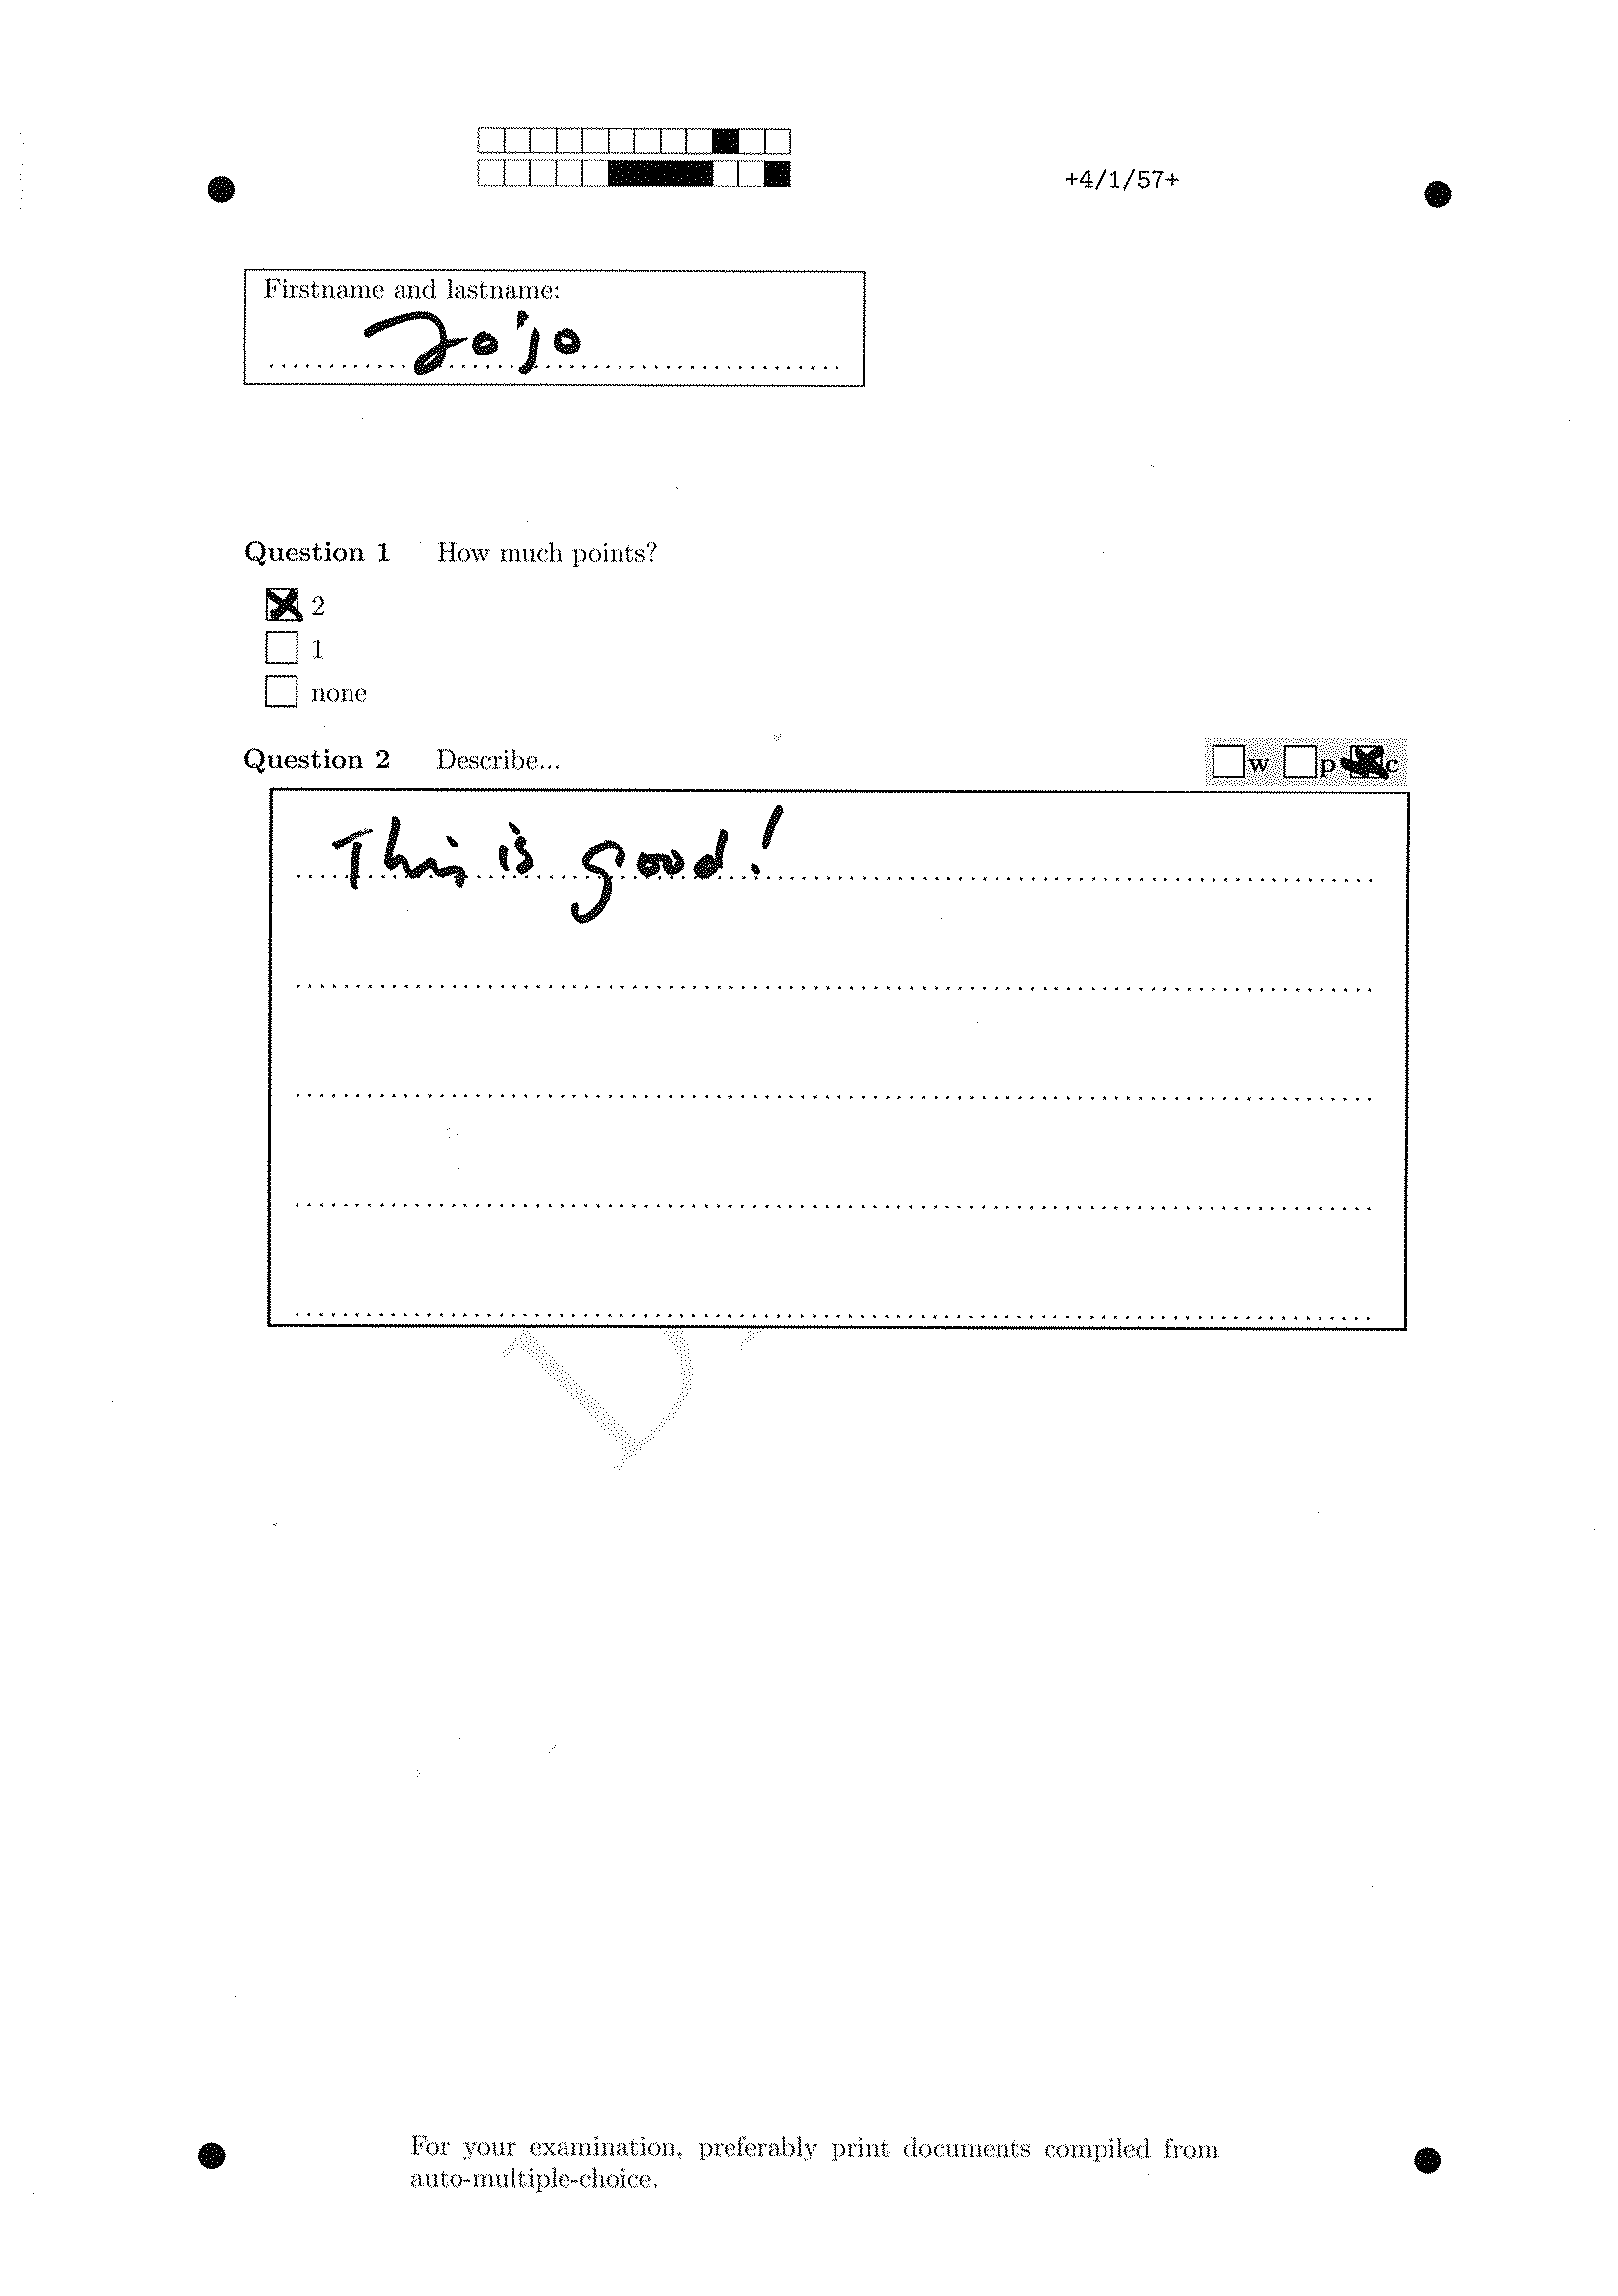 +4/1/57+
Firstname and lastname:
Jojo
Question 1 How much points?
2
1
none
Question 2 Describe...
w p c
This is good!
For your examination, preferably print documents compiled from
auto-multiple-choice.